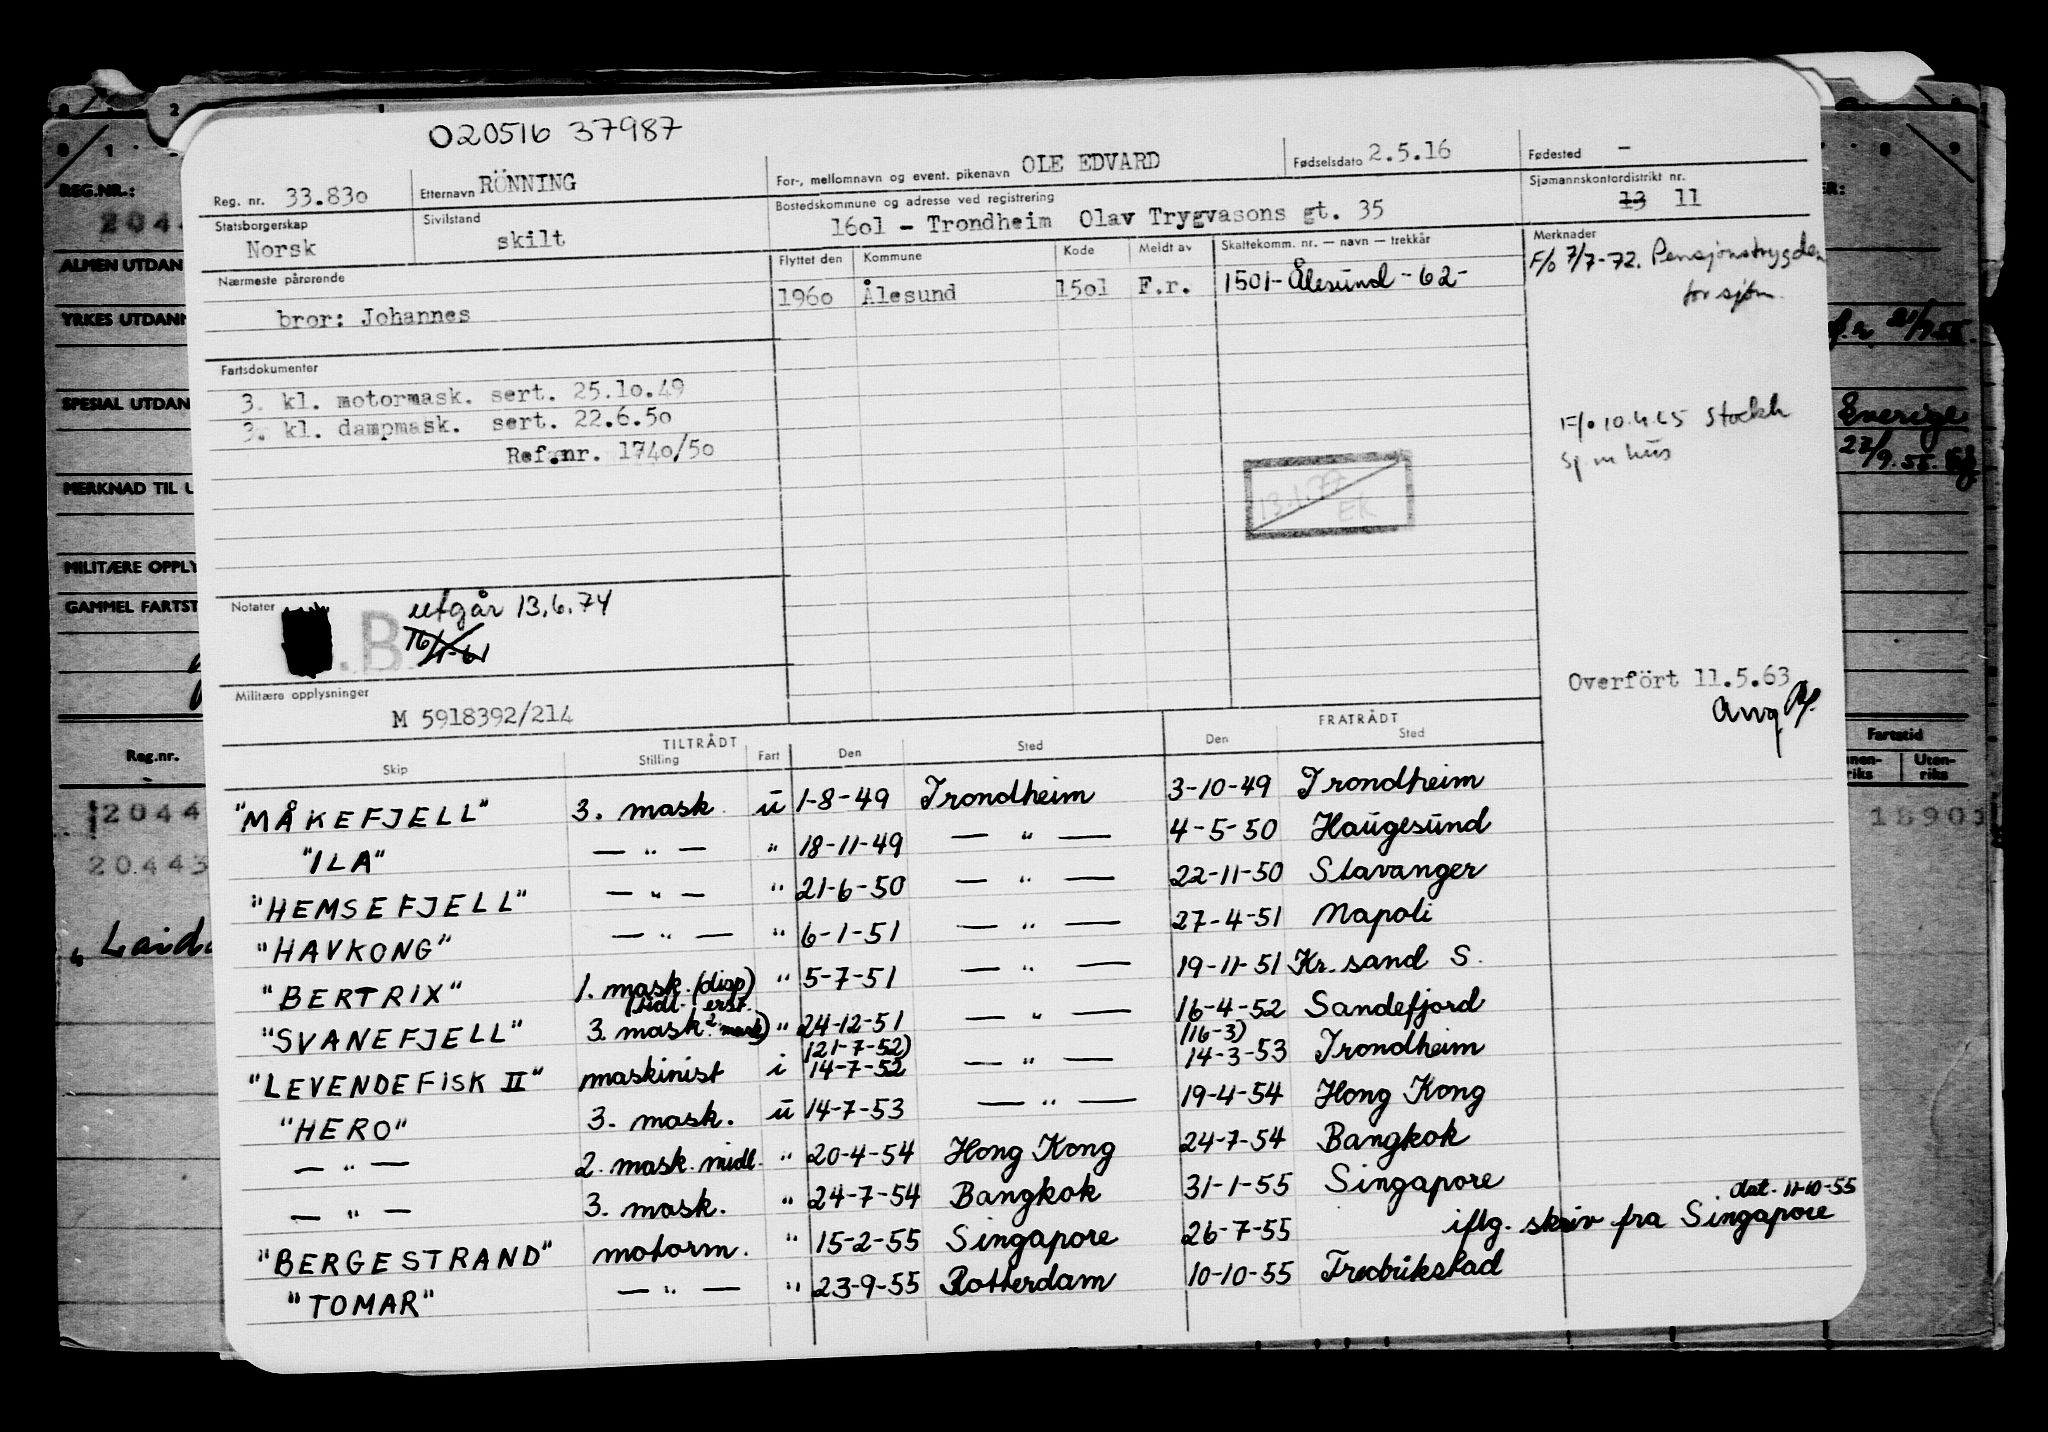 020516 37987
Reg. nr. 33.83o Etternavn RÖNNING For-, mellomnavn og event. pikenavn OLE EDVARD Fødselsdato 2.5.16 Fødested –
Statsborgerskap Norsk Sivilstand skilt Bostedskommune og adresse ved registrering 16o1 – Trondheim Olav Trygvasons gt. 35 Sjømannskontordistrikt nr. 13 11
Nærmeste pårørende Flyttet den Kommune Kode Meldt av Skattekomm. nr. — navn — trekkår Merknader
bror: Johannes 196o Ålesund 15o1 F.r. 1501-Ålesund-62- F/o 7/7-72. Pensjonstrygden
for sjøm.
Fartsdokumenter
3. kl. motormask. sert. 25.1o.49
3. kl. dampmask. sert. 22.6.5o
Ref.nr. 174o/5o
F/o 10.4.65 Stockh
Sj.m hus
13.1.77
EK
Notater .B. utgår 13.6.74
16/1-61
Militære opplysninger
M 5918392/214
Overfört 11.5.63
Avg.
TILTRÅDT FRATRÅDT
Skip Stilling Fart Den Sted Den Sted
"MÅKEFJELL" 3. mask. u 1-8-49 Trondheim 3-10-49 Trondheim
"ILA" — " — " 18-11-49 — " — 4-5-50 Haugesund
"HEMSEFJELL" — " — " 21-6-50 — " — 22-11-50 Stavanger
"HAVKONG" — " — " 6-1-51 — " — 27-4-51 Napoli
"BERTRIX" 1. mask. (disp) " 5-7-51 — " — 19-11-51 Kr. sand S.
"SVANEFJELL" 3. mask (tidl. erst. 2. mask) " 24-12-51 — " — 16-4-52 Sandefjord
"LEVENDEFISK II" maskinist i (21-7-52) 14-7-52 — " — (16-3) 14-3-53 Trondheim
"HERO" 3. mask. u 14-7-53 — " — 19-4-54 Hong Kong
— " — 2. mask. midl. " 20-4-54 Hong Kong 24-7-54 Bangkok
— " — 3. mask. " 24-7-54 Bangkok 31-1-55 Singapore
"BERGESTRAND" motorm. " 15-2-55 Singapore 26-7-55 iflg. skriv fra Singapore dat. 11-10-55
"TOMAR" — " — " 23-9-55 Rotterdam 10-10-55 Fredrikstad
REG.NR.:
2044
ALMEN UTDAN
YRKES UTDANN
SPESIAL UTDAN
MERKNAD TIL U
MILITÆRE OPPLY
GAMMEL FARTST
Reg.nr.
2044
20443
Sverige
Fartstid
Uten-
riks
18903